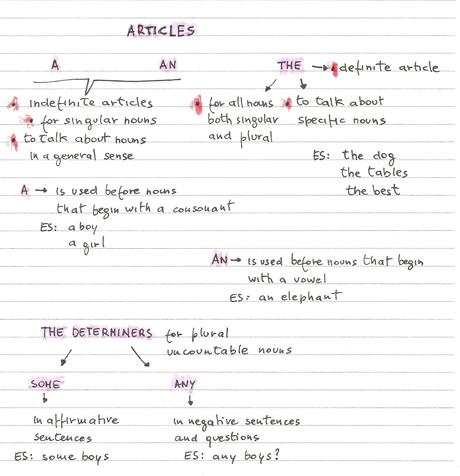 ARTICLES
A AN
indefinite articles
for singular nouns
to talk about nouns
in a general sense
THE → definite article
for all nouns
both singular
and plural
to talk about
specific nouns
ES: the dog
the tables
the best
A → is used before nouns
that begin with a consonant
ES: a boy
a girl
AN → is used before nouns that begin
with a vowel
ES: an elephant
THE DETERMINERS for plural
uncountable nouns
SOME
in affirmative
sentences
ES: some boys
ANY
in negative sentences
and questions
ES: any boys?